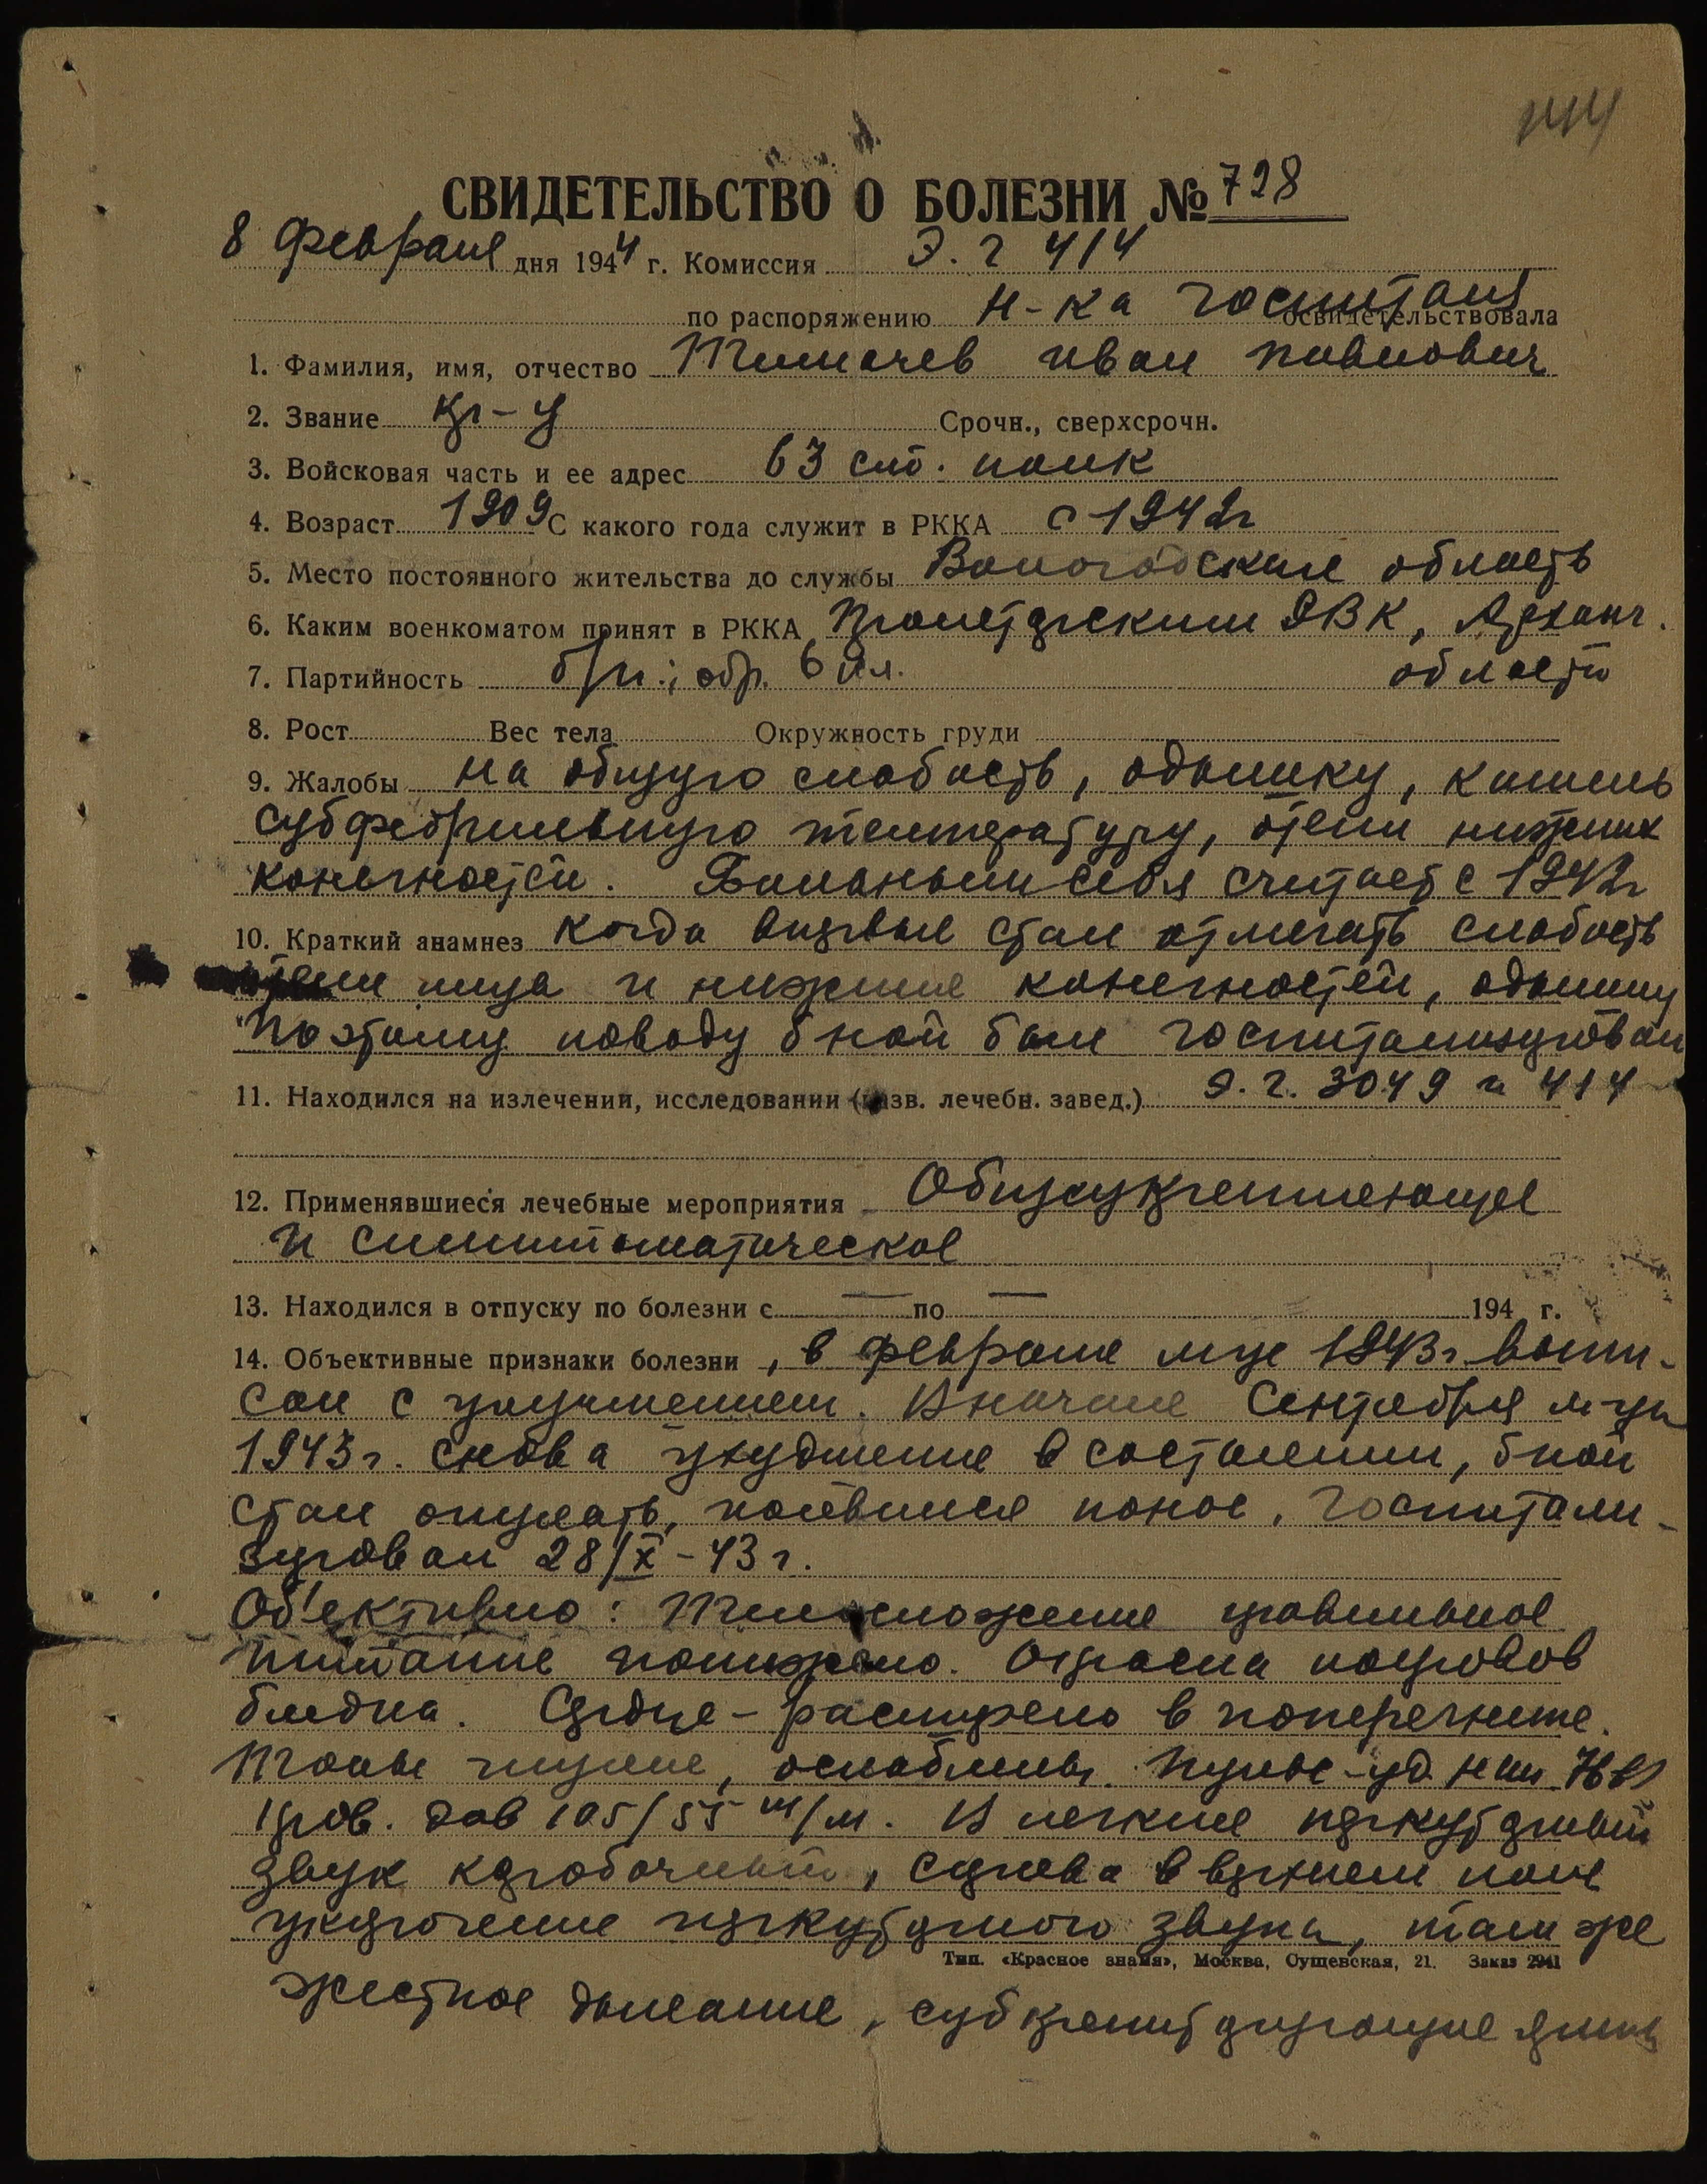 144
СВИДЕТЕЛЬСТВО О БОЛЕЗНИ № 728
8 февраля дня 1944 г. Комиссия Э. Г 414
по распоряжению н-ка госпиталя освидетельствовала
1. Фамилия, имя, отчество Иван Павлович
2. Звание кр-ц Срочн., сверхсрочн.
3. Войсковая часть и ее адрес 63 полк
4. Возраст 1909 С какого года служит в РККА с 1942г
5. Место постоянного жительства до службы Вологодская область
6. Каким военкоматом принят в РККА Пролетарским РВК, Арханг.
области
7. Партийность б/п.; обр. 6 кл.
8. Рост Вес тела Окружность груди
9. Жалобы на общую слабость, одышку, кашель
субфебрильную температуру, отеки нижних
конечностей. Больным себя считает с 1942г
10. Краткий анамнез когда впервые стал отмечать слабость
отеки лица и нижние конечностей, одышку
Поэтому поводу б-ной был госпитализирован
11. Находился на излечении, исследовании (назв. лечебн. завед.) Э. Г. 3049 и 414
12. Применявшиеся лечебные мероприятия Общеукрепляющее
и симптоматическое
13. Находился в отпуску по болезни с — по — 194 г.
14. Объективные признаки болезни , в феврале м-це 1943г. выпи-
сан с улучшением. В начале Сентября м-ца
1943г. снова ухудшение в состоянии, б-ной
стал опухать, появился понос. Госпитали-
зирован 28/X-43г.
Об'ективно: Телосложение правильное
питание понижено. Окраска покровов
бледна. Сердце - расширено в поперечнике.
Тоны глухие, ослаблены. Пульс - уд. 76 в 1
кров. дав 105/55 м/м. В легкие перкуторный
звук коробочный, справа в верхнем поле
укорочение перкуторного звука, там же
Тип. «Красное знамя», Москва, Сущевская, 21. Заказ 2941
жесткое дыхание, субкрепитирующие хрипы